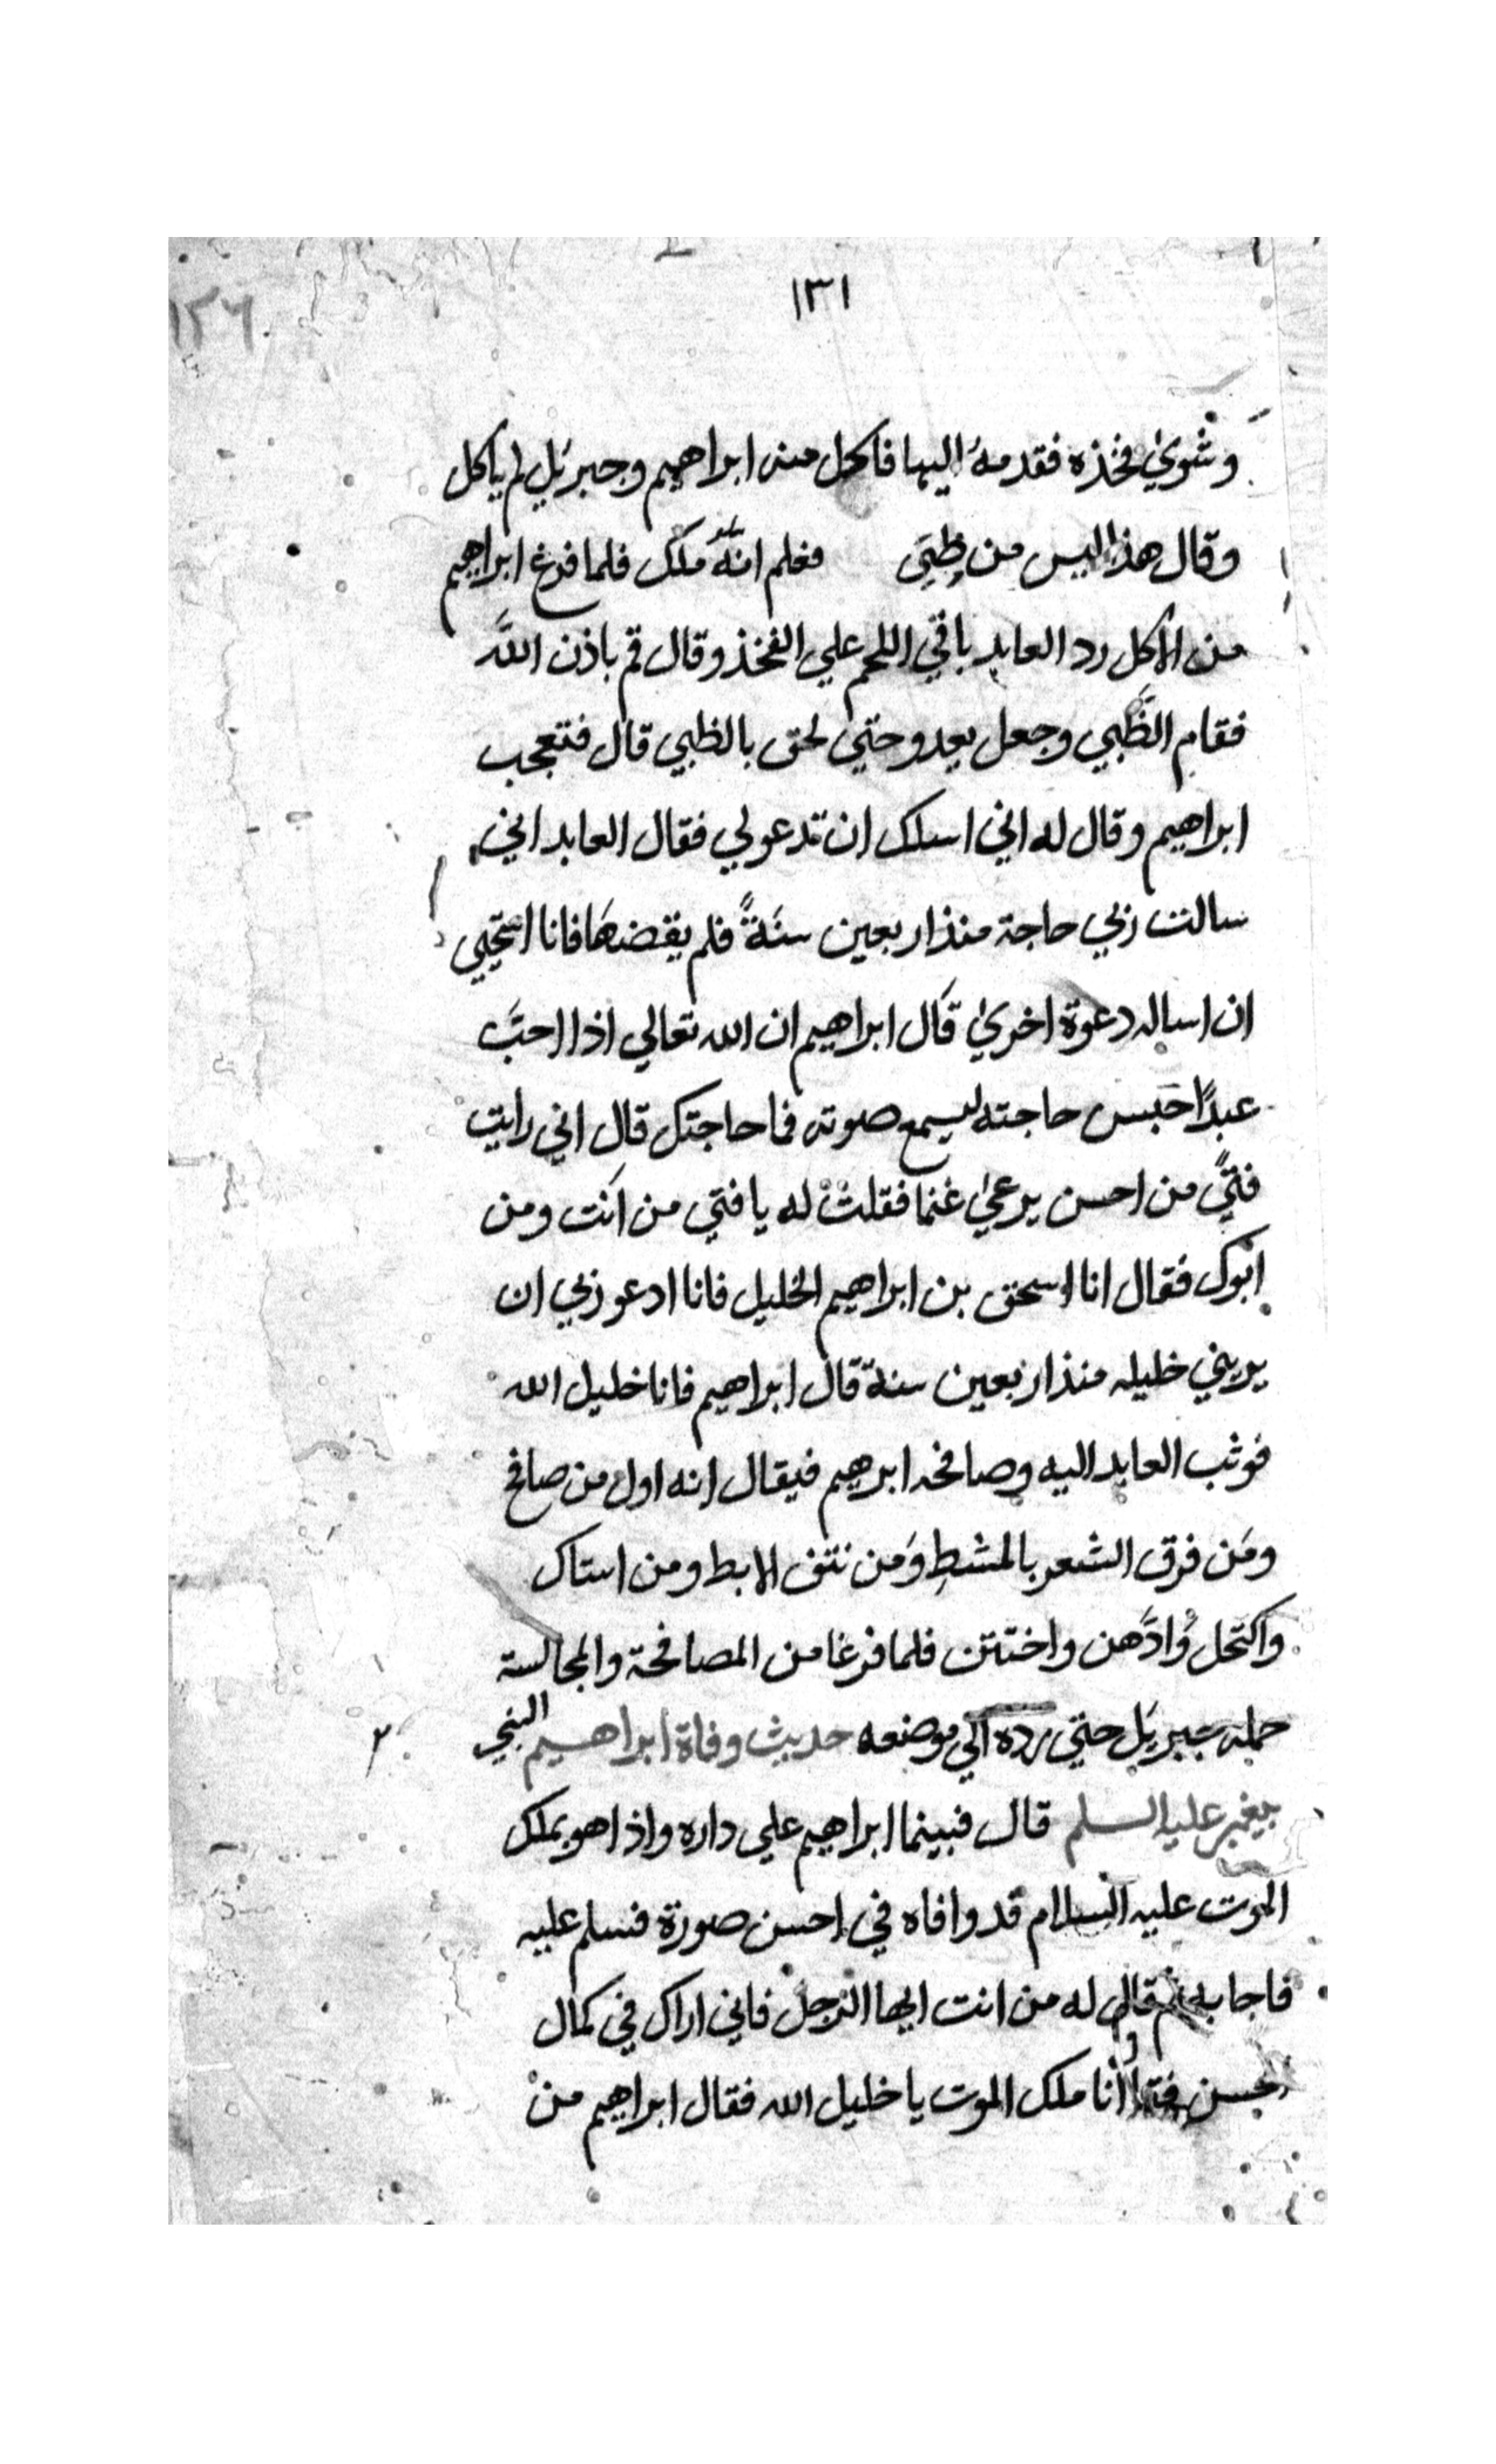 ١٣١
١٢٦
وشوي فخذه فقدمه اليها فاكل منه ابراهيم وجبريل لم ياكل
وقال هذا ليس من طبي فعلم انه ملك فلما فرغ ابراهيم
من الاكل رد العابد باقي اللحم علي الفخذ وقال قم باذن الله
فقام الظبي وجعل يعدو حتي لحق بالظبي قال فتعجب
ابراهيم وقال له اني اسلك ان تدعو لي فقال العابد اني
سالت ربي حاجة منذ اربعين سنة فلم يقضها فانا استحيي
ان اساله دعوة اخري قال ابراهيم ان الله تعالي اذا احب
عبدًا حبس حاجته ليسمع صوته فما حاجتك قال اني رايت
فتيً من احسن يرعي غنما فقلت له يا فتي من انت ومن
ابوك فقال انا اسحق بن ابراهيم الخليل فانا ادعو ربي ان
يريني خليله منذ اربعين سنة قال ابراهيم فانا خليل الله
فوثب العابد اليه وصافحه ابرهيم فيقال انه اول من صافح
ومن فرق الشعر بالمشط ومن نتف الابط ومن استاك
واكتحل وادَّهن واختتن فلما فرغا من المصافحة والمجالسة
حمله جبريل حتي رده الي موضعه حديث وفاة ابراهيم النبي
عليه السلم قال فبينما ابراهيم علي داره واذا هو بملك
الموت عليه السلام قد وافاه في احسن صورة فسلم عليه
فاجابه ثم قال له من انت ايها الرجل فاني اراك في كمال
حسن انا ملك الموت يا خليل الله فقال ابراهيم من